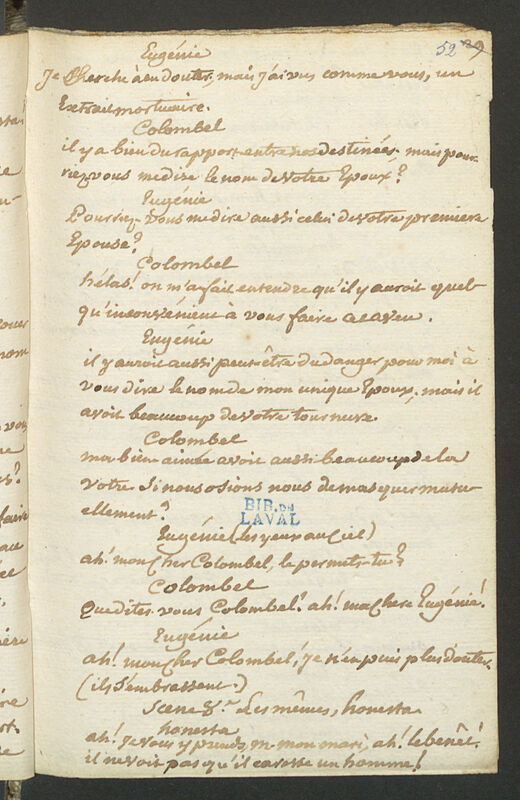 52 29
Eugénie
Je Cherche à en douter, mais j'ai vu comme vous, un
Extrait mortuaire.
Colombel
il y a bien du rapport entre nos destinées. mais pour-
riez-vous me dire le nom de votre Epoux?
Eugénie
Pourriez-vous me dire aussi celui de votre premiere
Epouse?
Colombel
hélas! on m'a fait entendre qu'il y auroit quel-
qu'inconvénient à vous faire cet aveu.
Eugénie
il y auroit aussi peut-être du danger pour moi à
vous dire le nom de mon unique Epoux, mais il
avoit beaucoup de votre tournure.
Colombel
ma bien aimée avoit aussi beaucoup de la
votre. Si nous osions nous demasquer mutu-
ellement?
BIB. DE
LAVAL
Eugénie (les yeux au Ciel)
ah! mon Cher Colombel, le permets-tu?
Colombel
Que dites-vous Colombel! ah! ma Chere Eugénie!
Eugénie
ah! mon Cher Colombel, Je n'en puis plus douter.
(ils s'embrassent.)
Scene 8.e Les mêmes, honesta
honesta
ah! Je vous y prends, m. mon mari, ah! le benêt!
il ne voit pas qu'il caresse un homme!